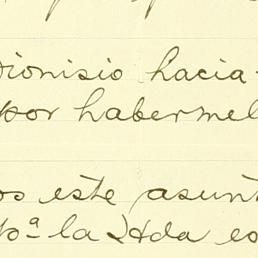 Dionisio hacia
por habermel
os este asunt
pª la Hda es